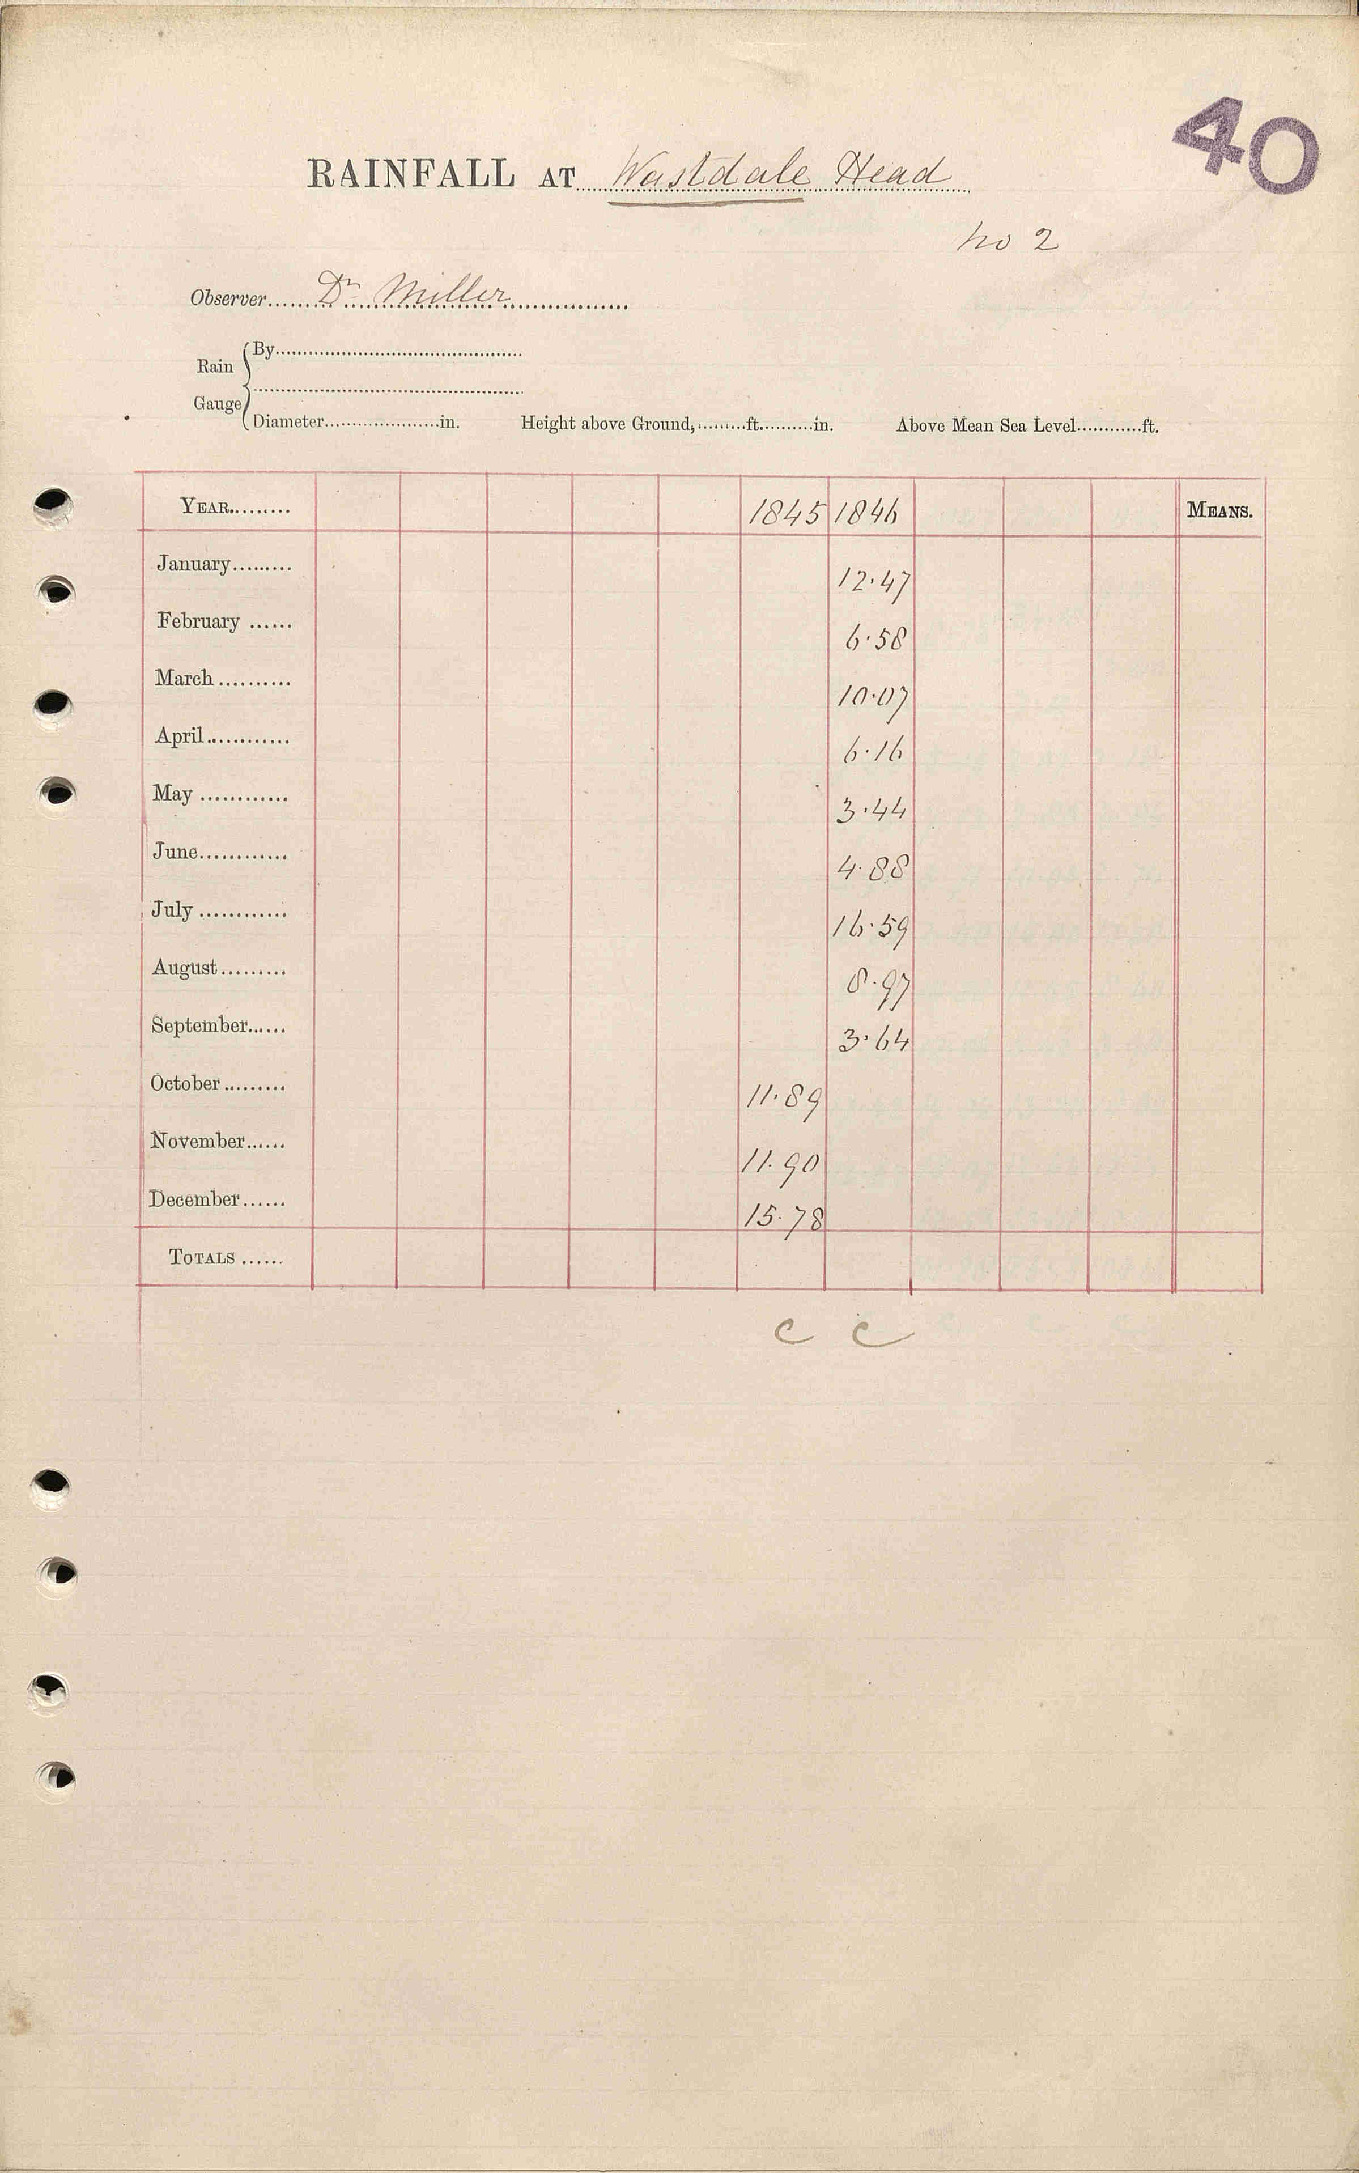 40
RAINFALL AT Wastdale Head
No 2
Observer Dr Miller
Rain Gauge
By
Diameter in. Height above Ground, ft. in. Above Mean Sea Level ft.
YEAR 1845 1846 MEANS.
January 12.47
February 6.58
March 10.07
April 6.16
May 3.44
June 4.88
July 16.59
August 8.97
September 3.64
October 11.89
November 11.90
December 15.78
TOTALS
C C